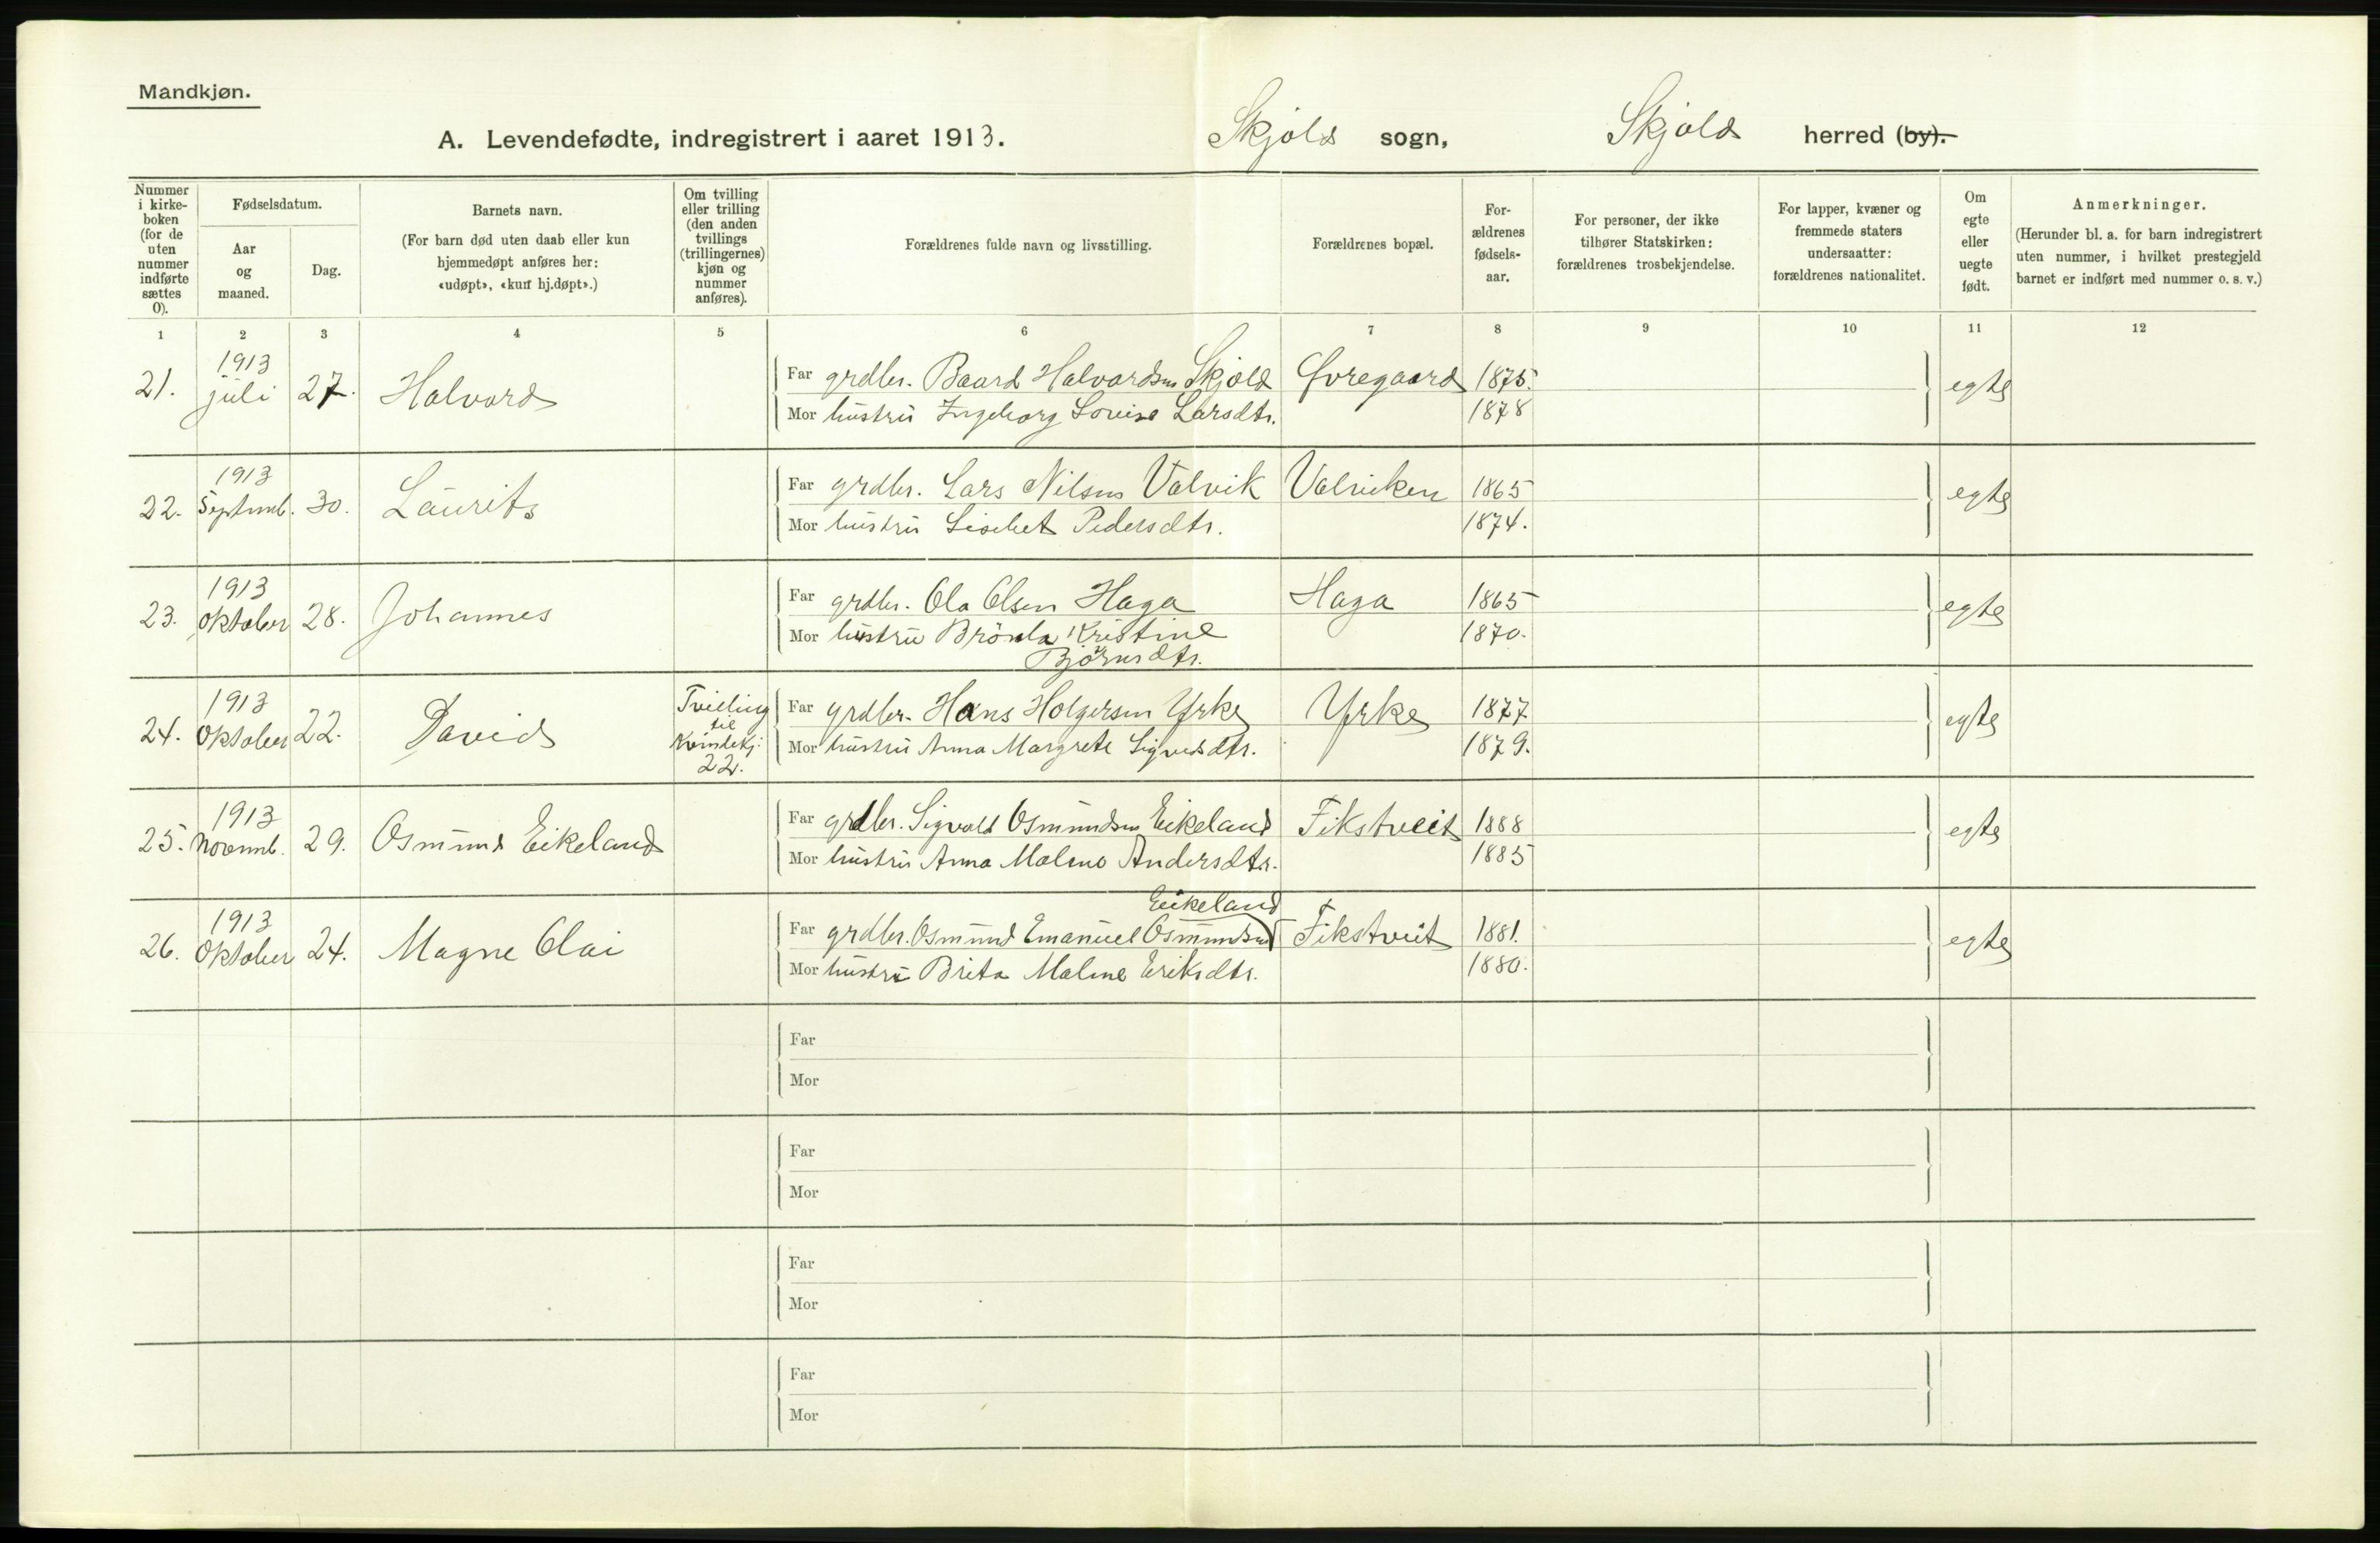 Mandkjøn.
A. Levendefødte, indregistrert i aaret 1913. Skjold sogn, Skjold herred (by).
Nummer i kirke-boken (for de uten nummer indførte sættes 0).
Fødselsdatum.
Aar og maaned.
Dag.
Barnets navn.
(For barn død uten daab eller kun hjemmedøpt anføres her: «udøpt», «kun hj.døpt».)
Om tvilling eller trilling (den anden tvillings (trillingernes) kjøn og nummer anføres).
Forældrenes fulde navn og livsstilling.
Forældrenes bopæl.
For-ældrenes fødsels-aar.
For personer, der ikke tilhører Statskirken: forældrenes trosbekjendelse.
For lapper, kvæner og fremmede staters undersaatter: forældrenes nationalitet.
Om egte eller uegte født.
Anmerkninger.
(Herunder bl. a. for barn indregistrert uten nummer, i hvilket prestegjeld barnet er indført med nummer o. s. v.)
1 2 3 4 5 6 7 8 9 10 11 12
21. 1913 juli 27. Halvord Far grdbr. Baard Halvordsen Skjold Øvregaard 1875. egte
Mor hustru Ingeborg Lovise Larsdtr. 1878
22. 1913 Septemb. 30. Laurits Far grdbr. Lars Nilsen Valvik Valviken 1865 egte
Mor hustru Lisebet Pedersdtr. 1874.
23. 1913 oktober 28. Johannes Far grdbr. Ola Olsen Haga Haga 1865 egte
Mor hustru Brønla Kristine 1870.
Bjørnsdtr.
24. 1913 Oktober 22. David Tvilling til Kvindekj. 22. Far grdbr. Hans Holgersen Yrke Yrke 1877 egte
Mor hustru Anna Margrete Sigvedsdtr. 1879.
25. 1913 Novemb. 29. Osmund Eikeland Far grdbr. Sigvald Osmundsen Eikeland Fikstveit 1888 egte
Mor hustru Anna Malene Andersdtr. 1885
Eikeland
26. 1913 Oktober 24. Magne Olai Far grdbr. Osmund Emanuel Osmundsen Fikstveit 1881. egte
Mor hustru Brita Maline Eriksdtr. 1880.
Far
Mor
Far
Mor
Far
Mor
Far
Mor